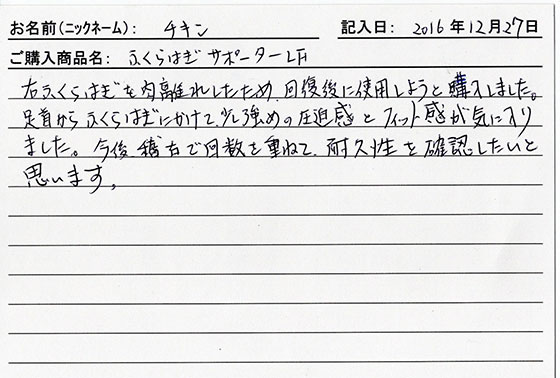 お名前(ニックネーム): チキン 記入日: 2016年12月27日
ご購入商品名: ふくらはぎサポーターLH
右ふくらはぎを肉離れしたため、回復後に使用しようと購入しました。
足首からふくらはぎにかけて、少し強めの圧迫感とフィット感が気に入り
ました。今後、稽古で回数を重ねて、耐久性を確認したいと
思います。